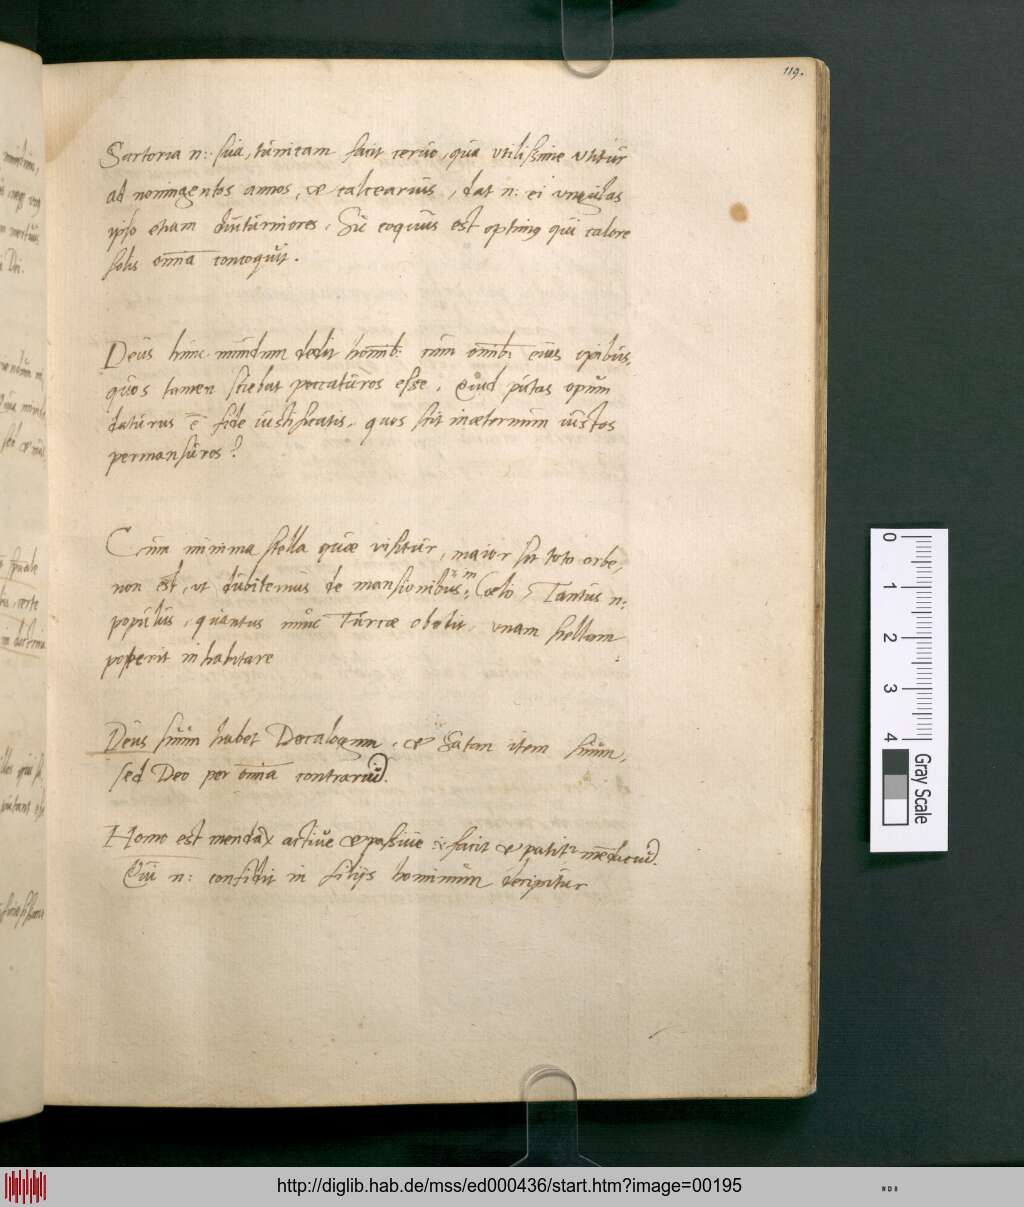 119.
Sartoria n: sua, tunicam facit ceruo, qua vtilissime vtitur
ad noningentos annos, et calcearius, dat n: ei vngulas
ipso etiam diuturniores. Sic coquus est optimus qui calore
solis omnia concoquit.
Deus hunc mundum dedit hominib: cum omnib: eius opibus,
quos tamen sciebat peccaturos esse. Quid putas opum
daturus est fide iustificatis, quos scit in aeternum iustos
permansuros?
Cum minima stella quae visitur, maior sit toto orbe,
non est, vt dubitemus de mansionibus in Coelo, Tantus n:
populus, quantus nunc Turcae obedit, vnam stellam
posserit inhabitare
Deus suum habet Decalogum, et Satan item suum,
sed Deo per omnia contrarium.
Homo est mendax actiue et passiue i: facit et patitur mendacium.
Qui n: confidit in filijs hominum decipitur
0
1
2
3
4
Gray Scale
http://diglib.hab.de/mss/ed000436/start.htm?image=00195